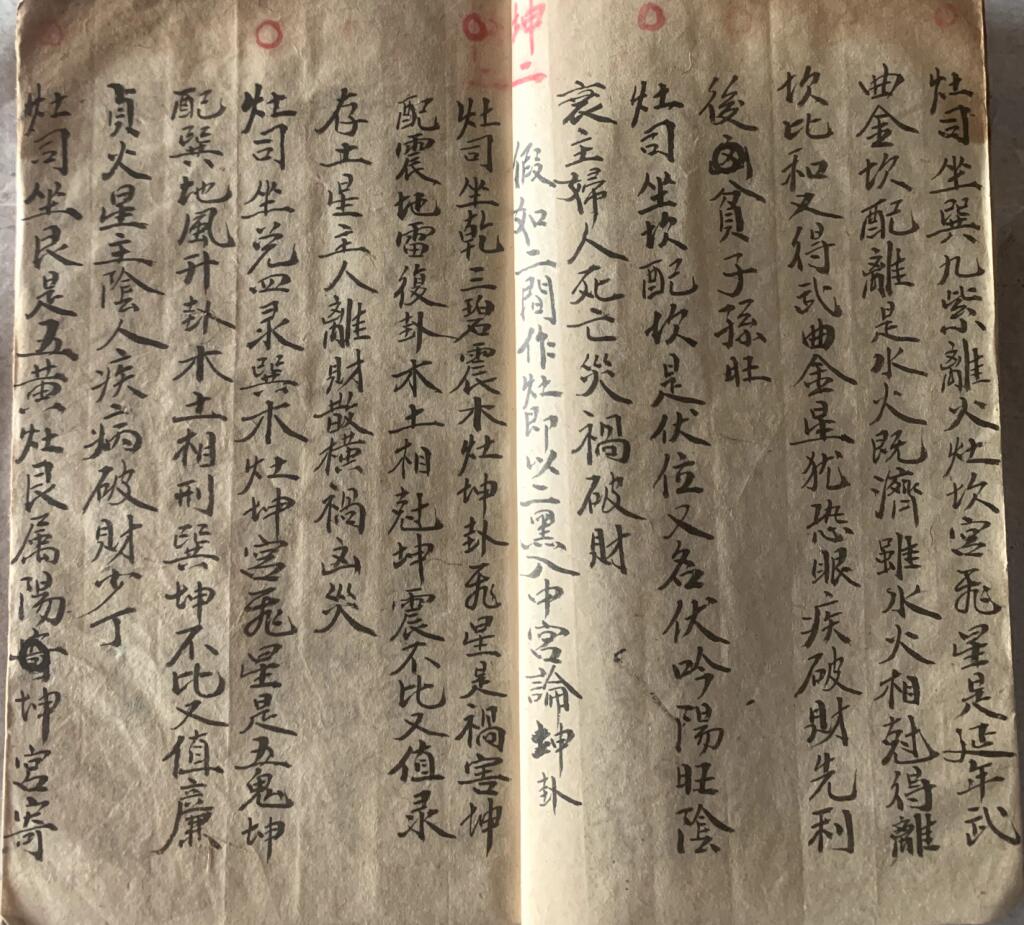 灶司坐巽九紫離火灶坎宮飛星是延年武
曲金坎配離是水火既濟雖水火相尅得離
坎比和又得武曲金星犹恐眼疾破財先利
後凶貧子孫旺
灶司坐坎配坎是伏位又名伏吟陽旺陰
衰主婦人死亡災禍破財
坤二
假如二間作灶即以二黑入中宮論坤卦
灶司坐乾三碧震木灶坤卦飛星是禍害坤
配震地雷復卦木土相尅坤震不比又值录
存土星主人離財散橫禍凶災
灶司坐兌四录巽木灶坤宮飛星是五鬼坤
配巽地風升卦木土相刑巽坤不比又值廉
貞火星主陰人疾病破財少丁
灶司坐艮是五黄灶艮属陽土坤宮寄